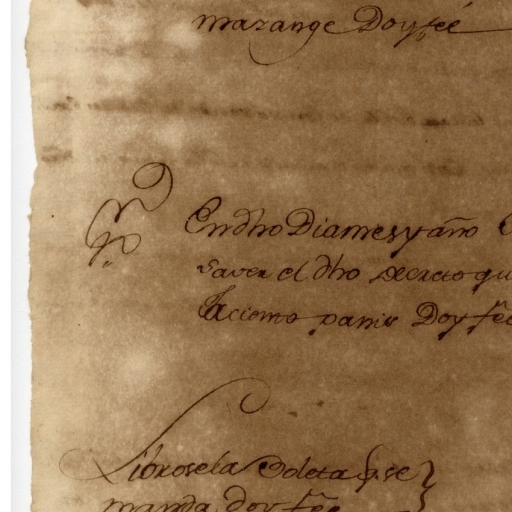 mazange Doy feé
En dho Dia mes y año
saver el dho decreto qu
Jaciomo panis Doy fee
Librose la Boleta q. se
manda doy fee